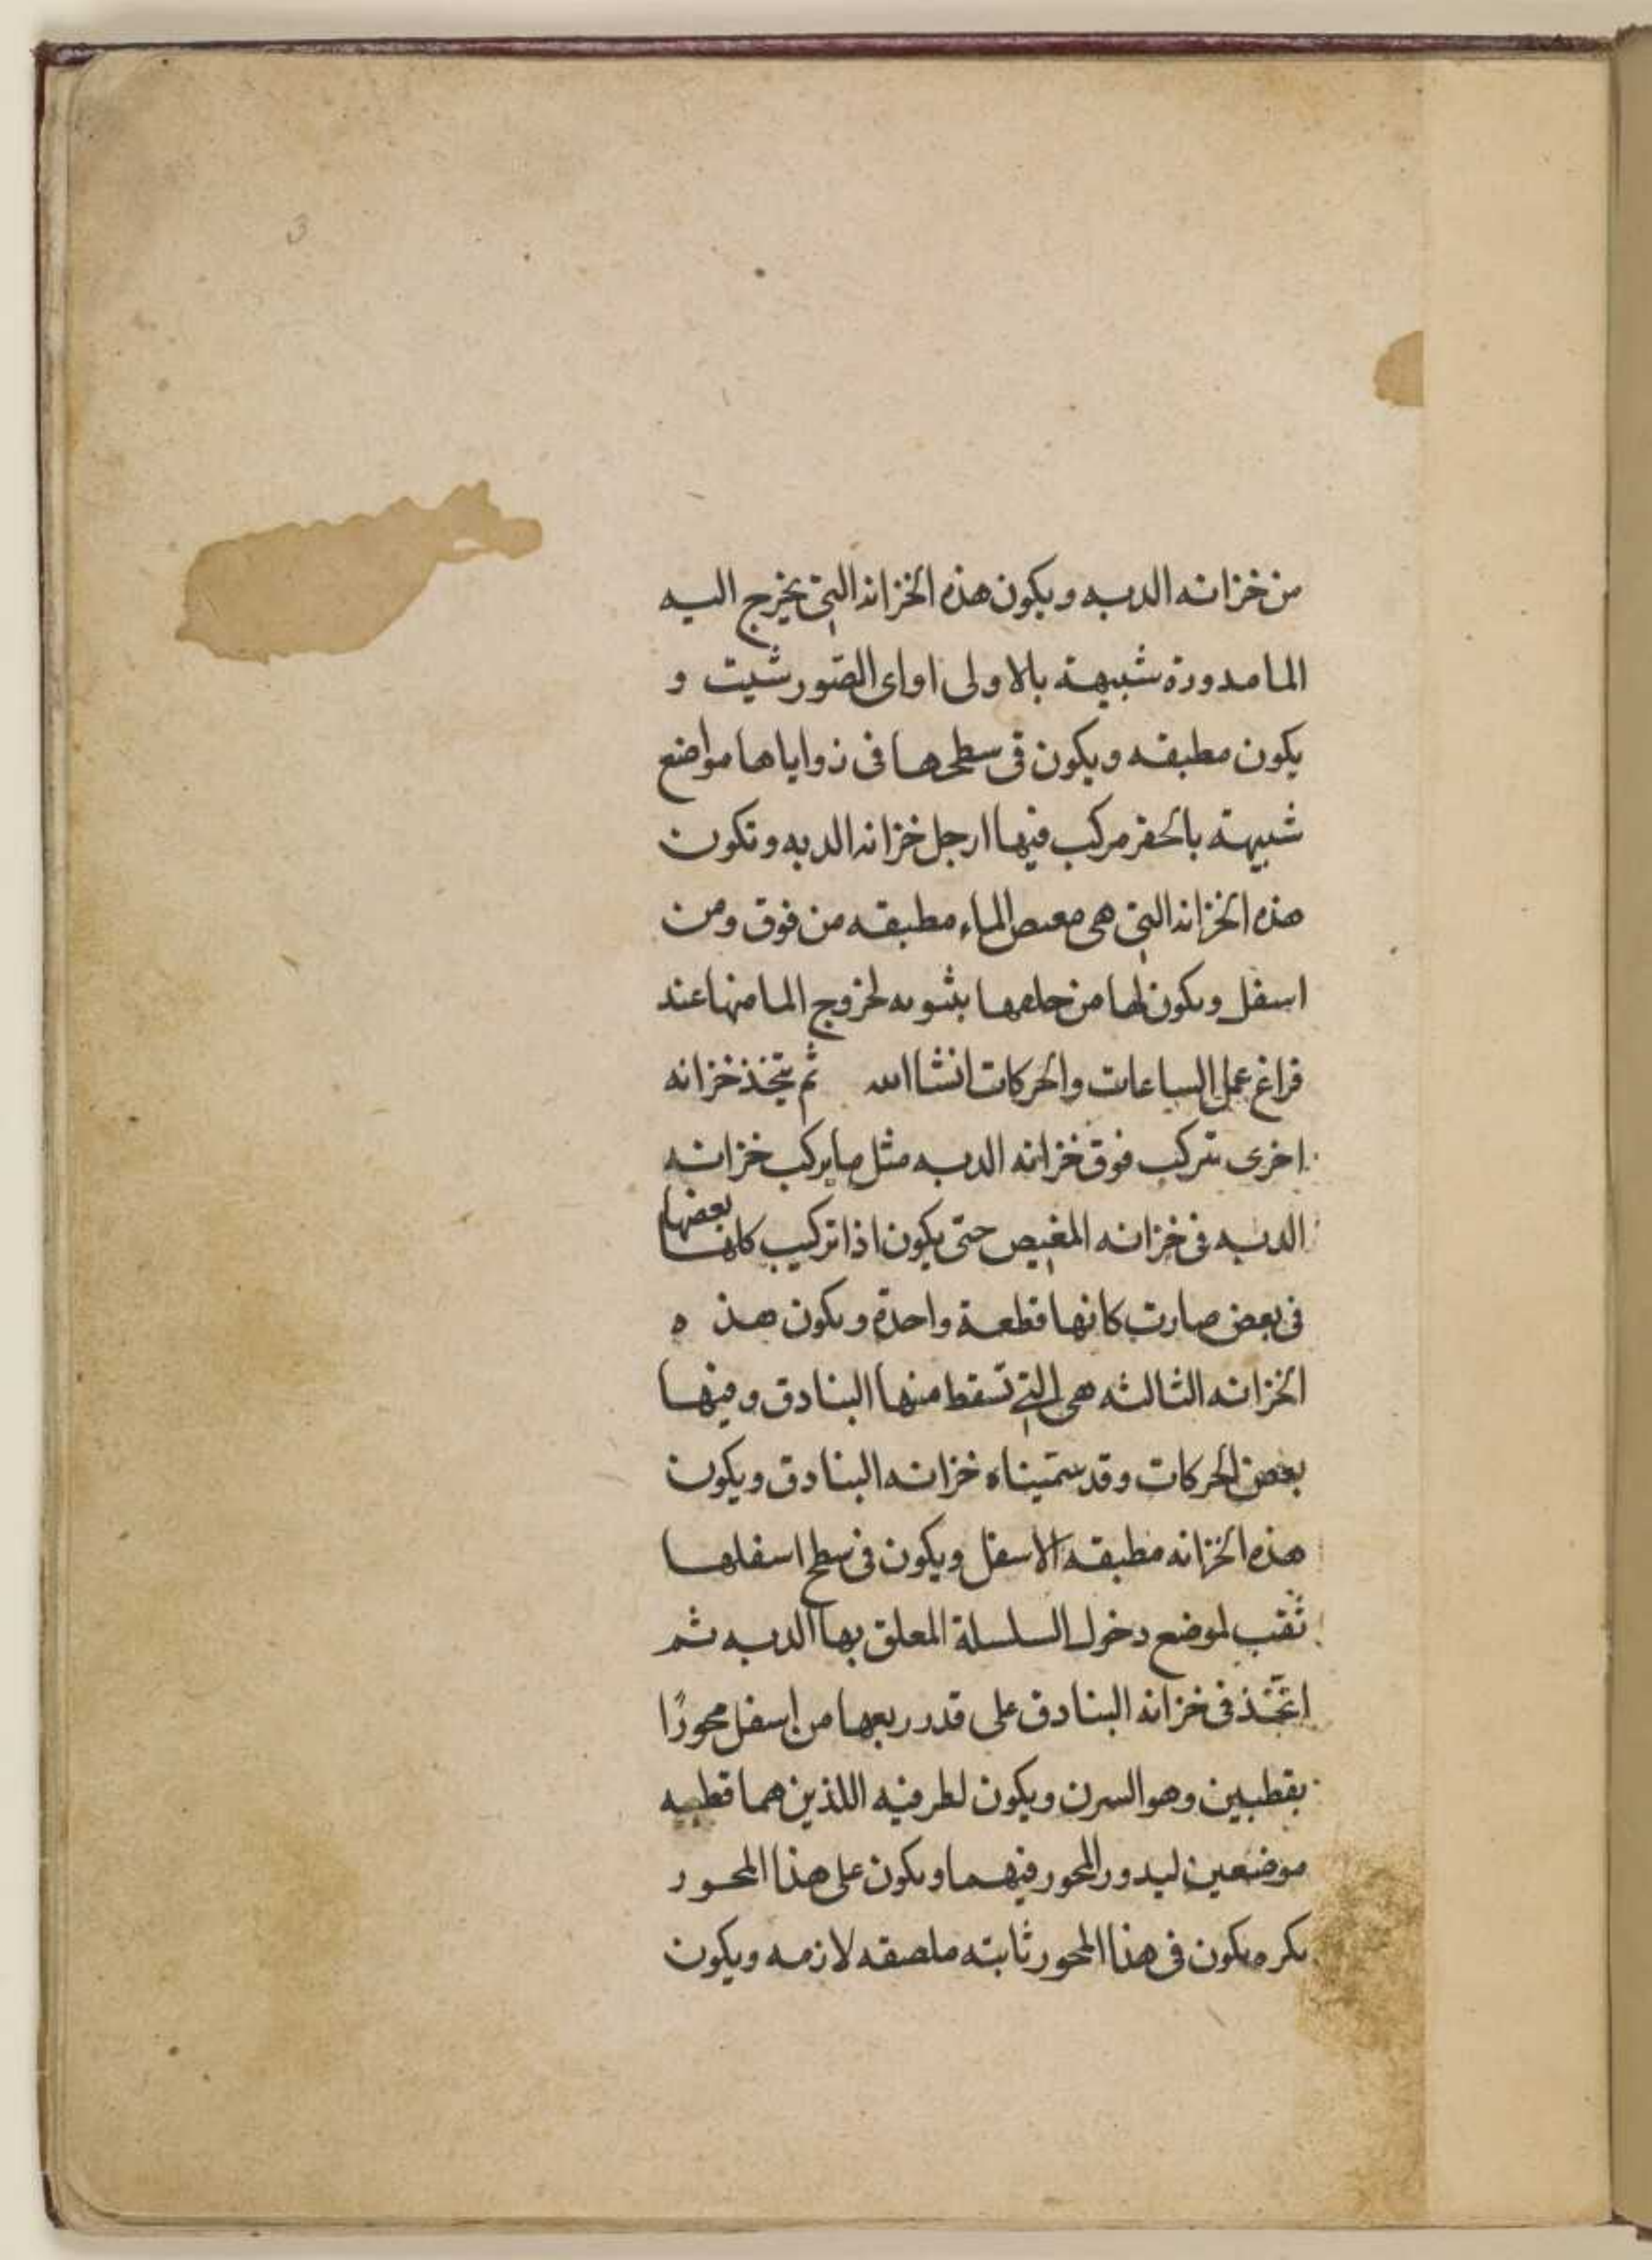 3
من خزانه الدبه ويكون هذه الخزانه التي يخرج اليه
الما مدورة شبيهة بالاولى او اى الصّور شيت و
يكون مطبقه ويكون فى سطحها فى زواياها مواضع
شبيهة بالحفر مركب فيها ارجل خزانه الدبه وتكون
هذه الخزانه التي هى مغيص الماء مطبقه من فوق ومن
اسفل ويكون لها من لخروج الما منها عند
فراغ عمل الساعات والحركات انشا الله ثم يتخذ خزانه
اخرى تتركب فوق خزانه الدبه مثل ما يركب خزانه
الدبه فى خزانه المغيص حتى يكون اذا تركيب كانها بعضها
فى بعض صارت كانها قطعة واحدة ويكون هذه
الخزانه الثالثه هى التي تسقط منها البنادق وفيها
بعض الحركات وقد سمّيناه خزانه البنادق ويكون
هذه الخزانه مطبقه الاسفل ويكون فى سطح اسفلها
ثقب لموضع دخول السلسلة المعلق بها الدبه ثم
اتّخذ فى خزانه البنادق على قدر ربعها من اسفل محورًا
بقطبين وهو السرن ويكون لطرفيه اللذين هما قطبيه
موضعين ليدور المحور فيهما ويكون على هذا المحور
بكره يكون فى هذا المحور ثابته ملصقه لازمه ويكون